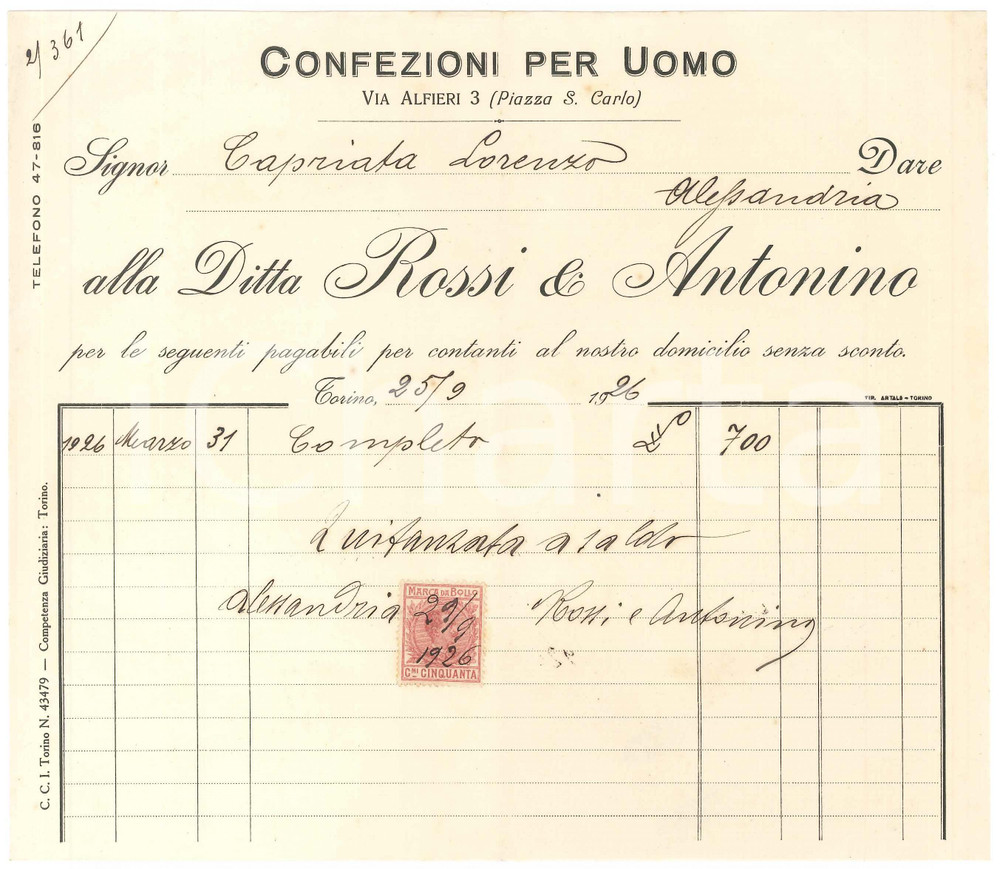 2/361
CONFEZIONI PER UOMO
VIA ALFIERI 3 (Piazza S. Carlo)
TELEFONO 47-816
Signor Capriata Lorenzo Dare
Alessandria
alla Ditta Rossi & Antonino
per le seguenti pagabili per contanti al nostro domicilio senza sconto.
Torino, 25/9 1926
TIP. ARTALE - TORINO
1926 Marzo 31 Completo 700
Quitanzata a saldo
Alessandria 29/9 1926 Rossi e Antonino
MARCA DA BOLLO
CMI CINQUANTA
C. C. I. Torino N. 43479 — Competenza Giudiziaria: Torino.